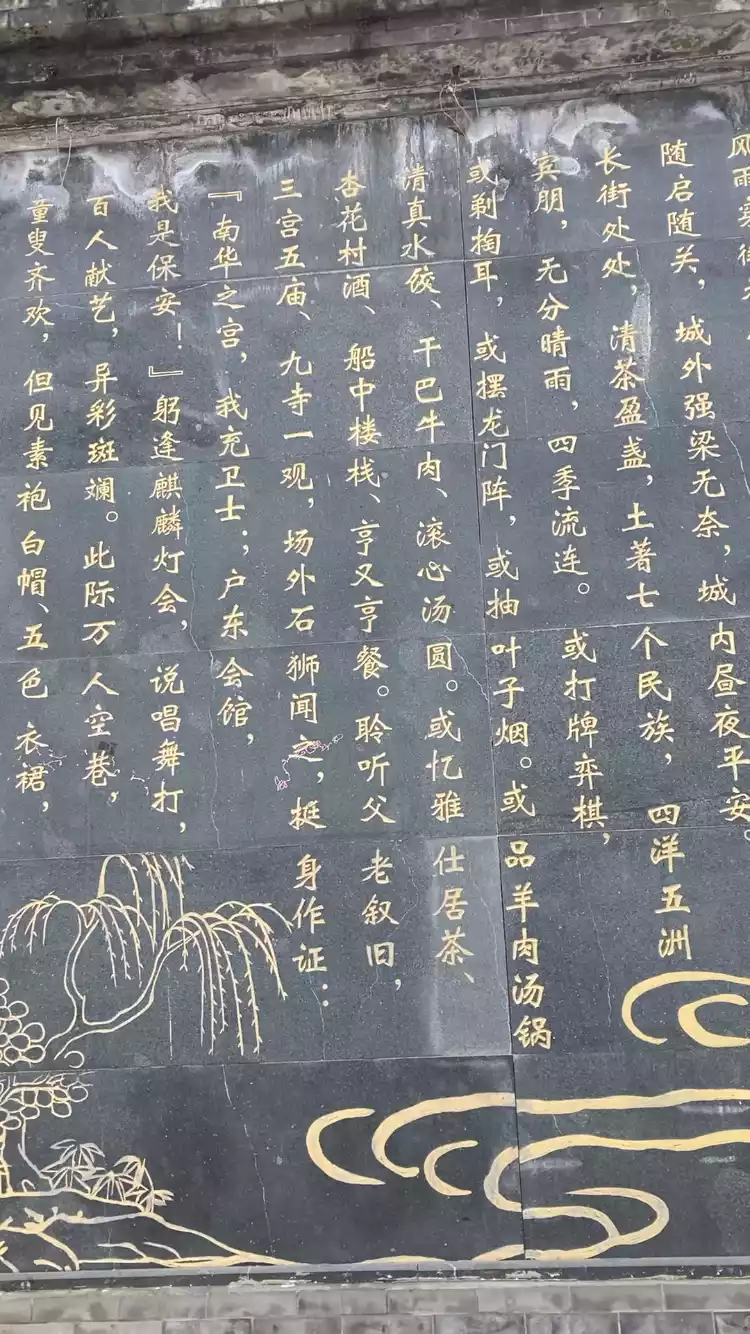 风雨
随启随关，城外强梁无奈，城内昼夜平安。
长街处处，清茶盈盏，土著七个民族，四洋五洲
宾朋，无分晴雨，四季流连。或打牌弈棋，
或剃掏耳，或摆龙门阵，或抽叶子烟。或品羊肉汤锅
清真水饺、干巴牛肉、滚心汤圆。或忆雅仕居茶、
杏花村酒、船中楼栈、亨又亨餐。聆听父老叙旧，
三宫五庙、九寺一观，场外石狮闻之，挺身作证：
『南华之宫，我充卫士；户东会馆，
我是保安！』躬逢麒麟灯会，说唱舞打，
百人献艺，异彩斑斓。此际万人空巷，
童叟齐欢，但见素袍白帽、五色衣裙，